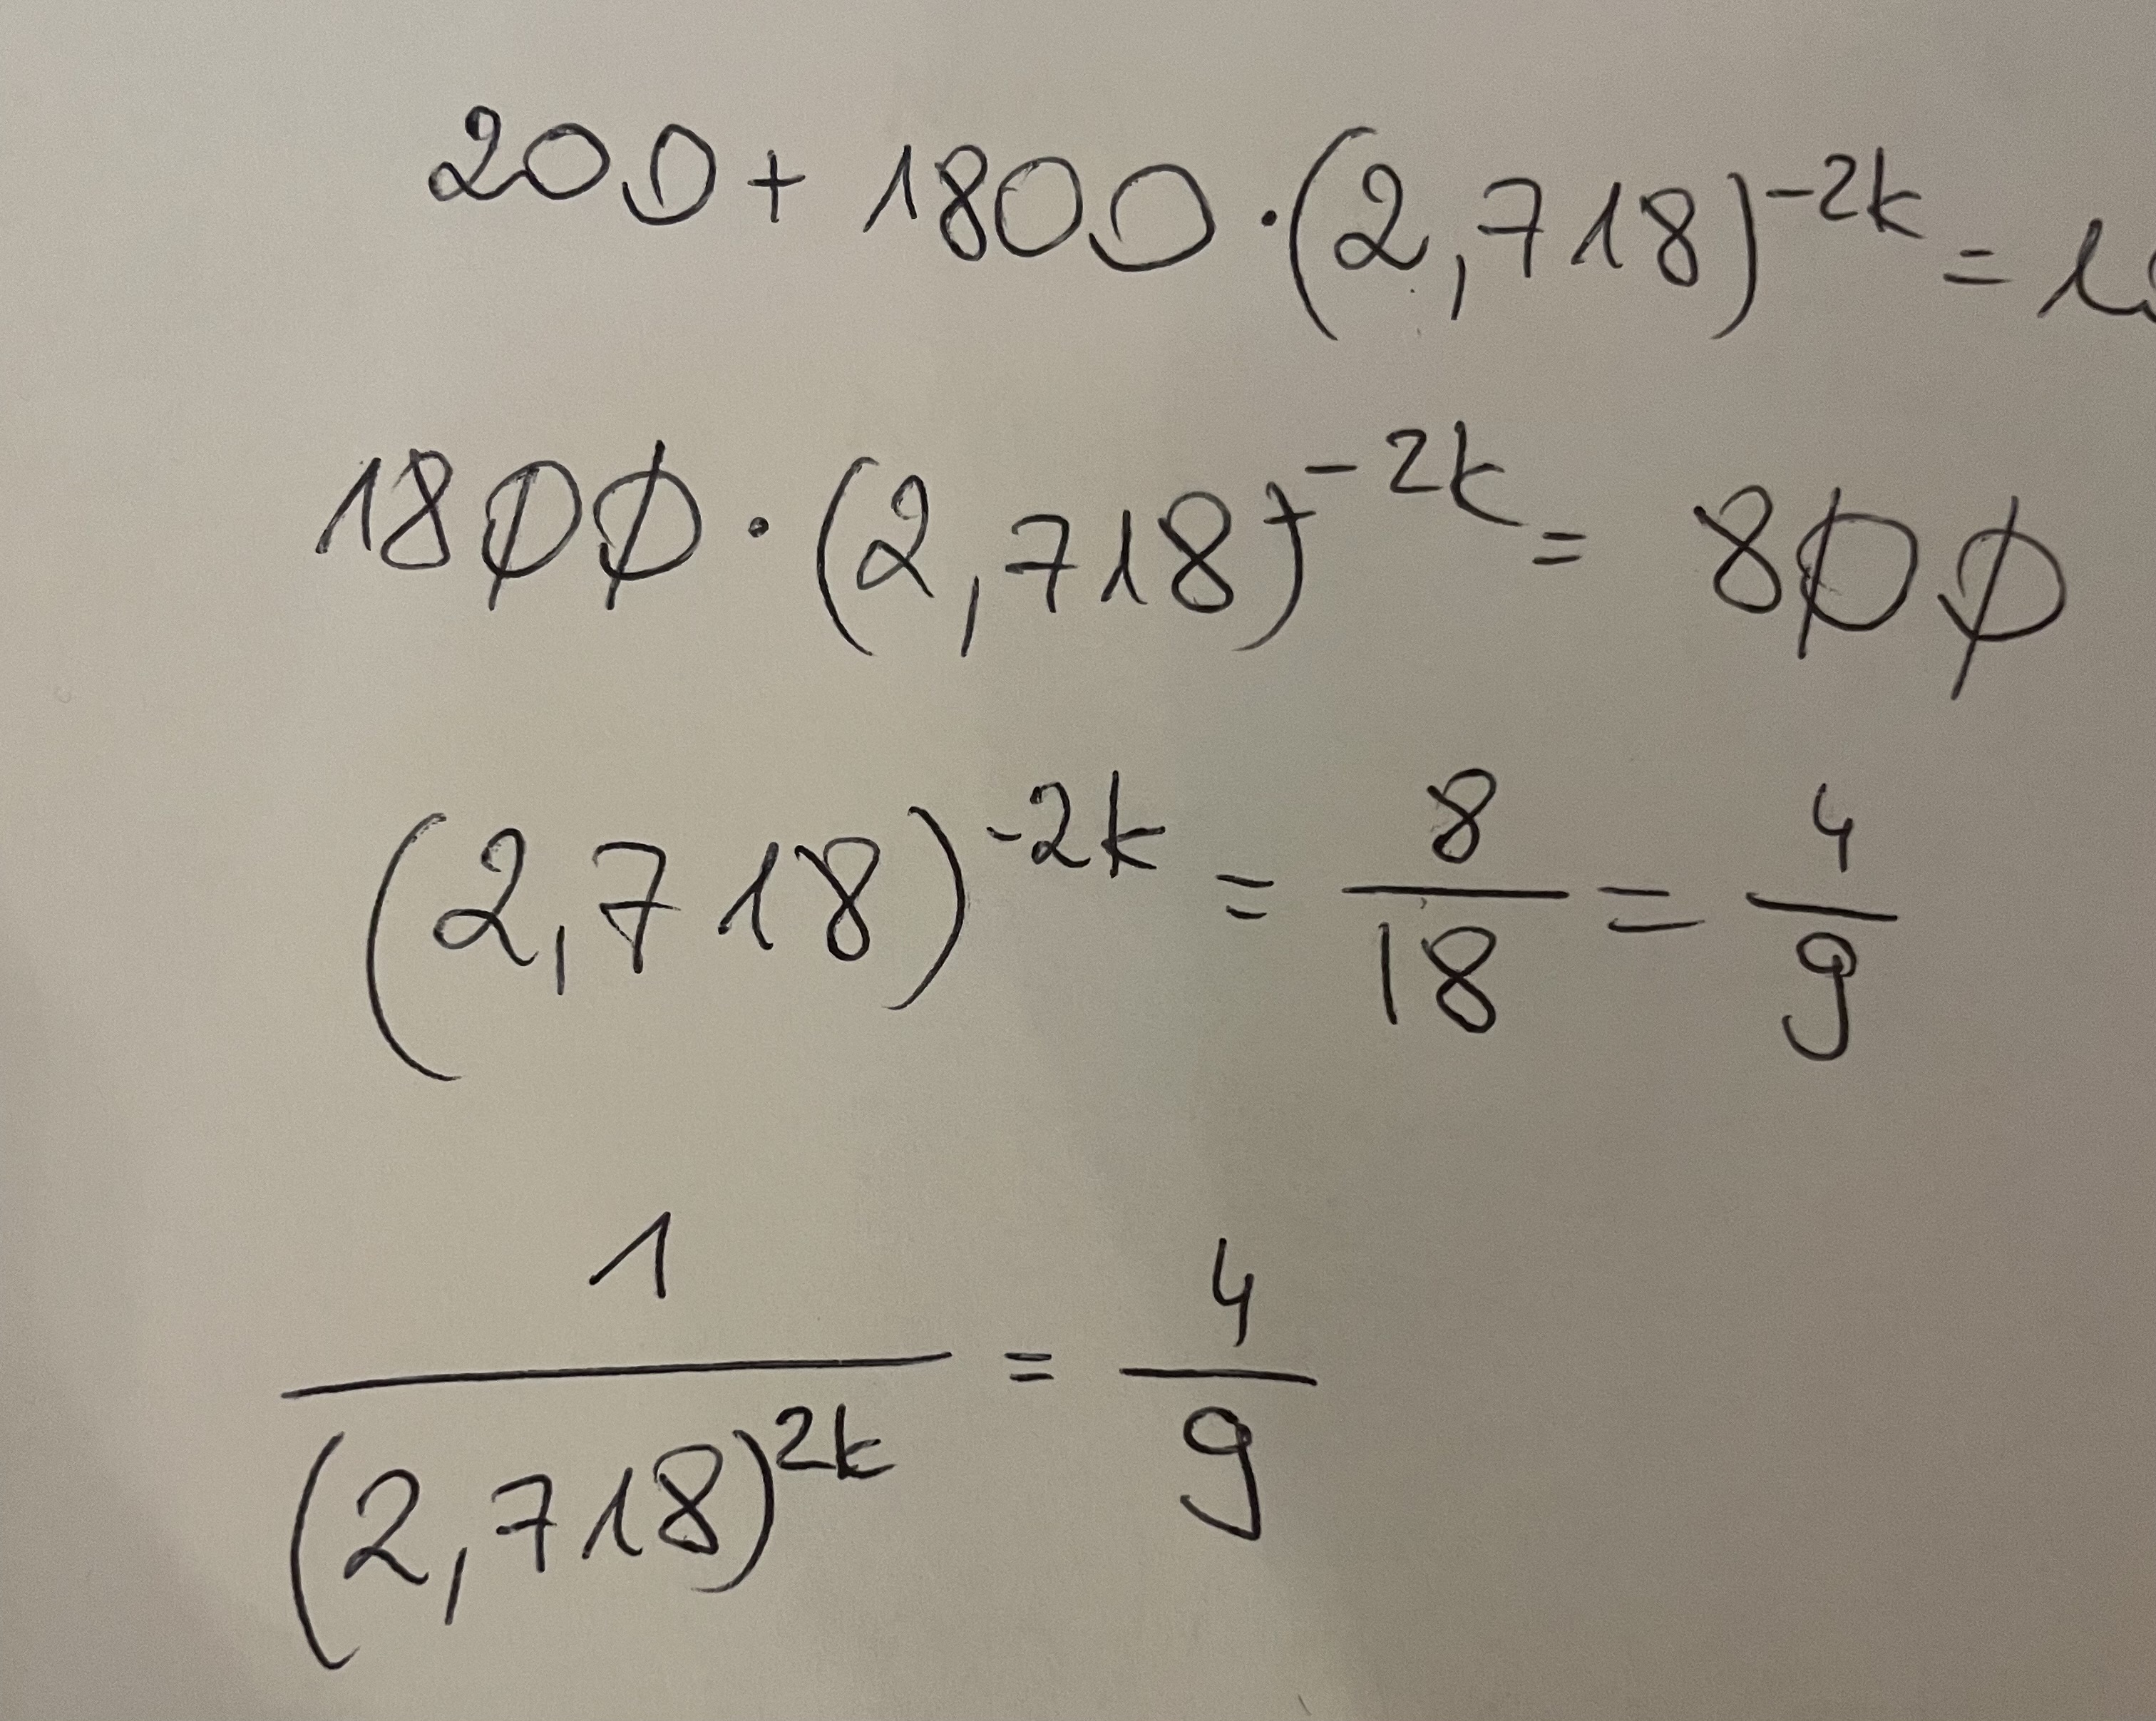 200 + 1800 · (2,718)^-2k =
1800 · (2,718)^-2k = 800
(2,718)^-2k = 8/18 = 4/9
1/(2,718)^2k = 4/9